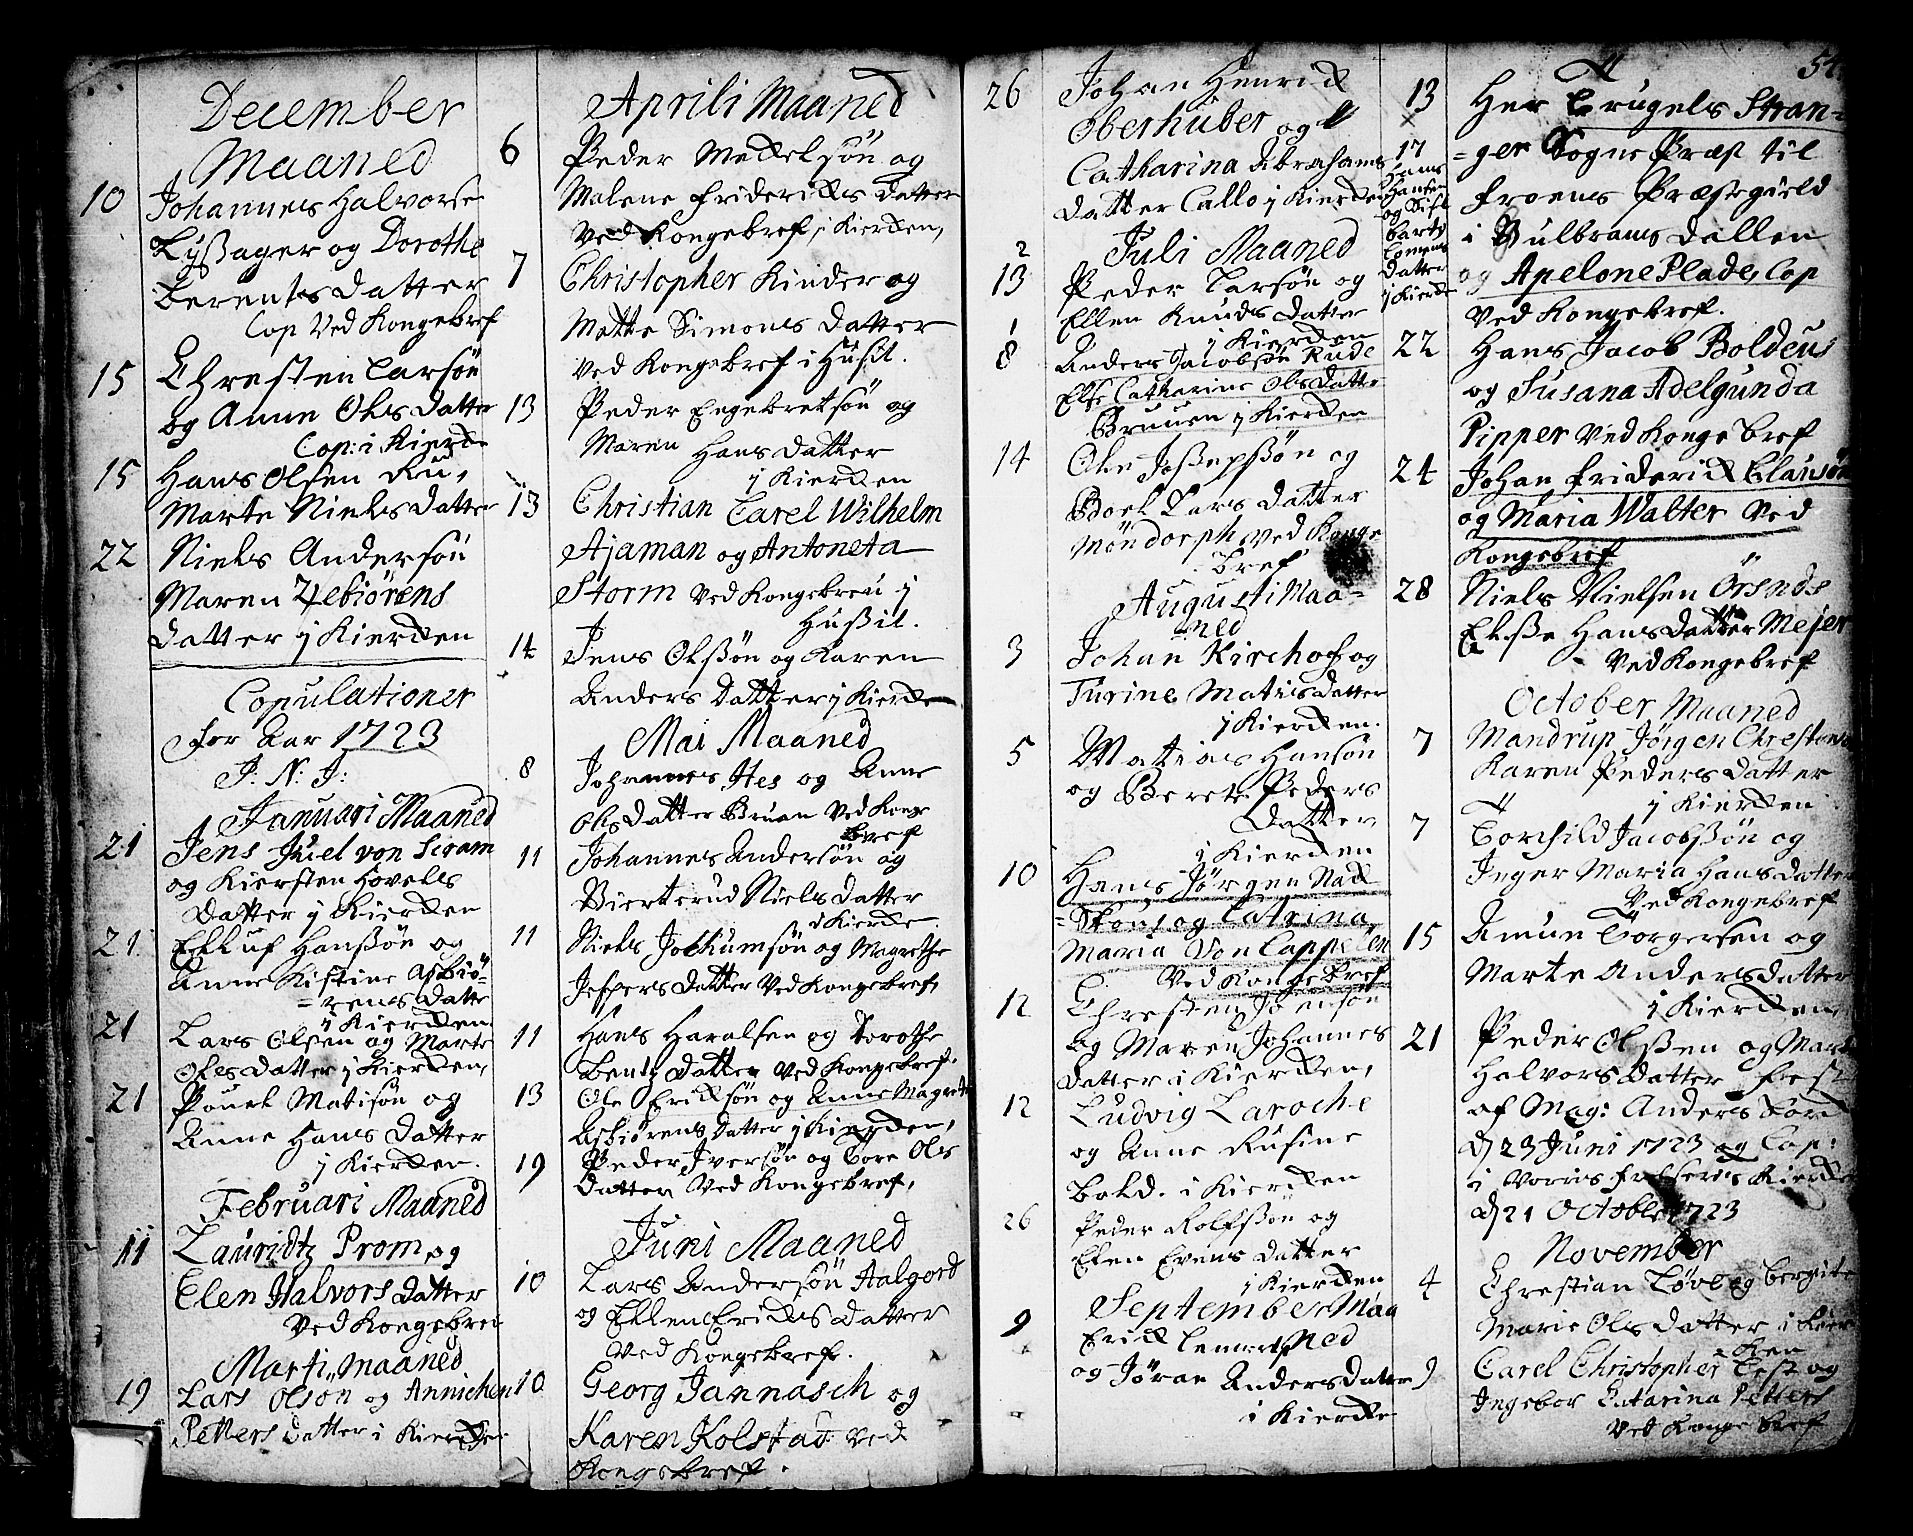 December
Maaned
10 Johannes Halvorse
Lyßager og Dorothe
Berents datter
Cop Ved Kongebref
15 Chresten Larsøn
og Anne Ols datter
Cop: i Kierk
15 Hans Olsen Ru,
Marte Niels datter
22 Niels Andersøn
Maren Zebiörens
datter j Kierken
Copulationer
for Aar 1723
J: N: J:
Januari Maaned
21 Jens Juel von
og Kiersten Hovels
datter j Kierken
21 Elluf Hanßøn og
Anne Kistine Asbiö-
=rens datte
i Kierken
21 Lars Olsen og Marte
Oles datter j Kierken,
21 Pouel Matisøn og
Anne Hans datter
j Kierken.
Februari Maaned
11 Lauridtz Prom og
Elen Halvors datter
Ved Kongebrev
Marti Maaned
19 Lars Olson og Annichen
Petters datter i Kierken
Aprili Maaned
6 Peder Mekelsøn og
Malene Friderichs datter
Ved Kongebref, i Kierken,
7 Christopher Kinder og
Mette Simons datter
ved Kongebref i Husit.
13 Peder Engebretsøn og
Maren Hans datter
j Kierken
13 Christian Carel Wilhelm
Ajaman og Antoneta
Storm ved Kongebrev j
Hußit.
14 Jens Olßøn og Karen
Anders datter j Kierke
Mai Maaned
8 Johannes Hes og Anne
Ols datter Bruun Ved Konge
bref
11 Johannes Andersøn og
Niels datter
i Kierke
11 Niels Jochumsøn og Magrethe
Jespers datter Ved Kongebref,
11 Hans Haralsen og Dorothe
Bentz datter Ved Kongebref.
13 Ole Eriksøn og Anne Magrete
Asbiørens datter j Kierken,
19 Peder Jversøn og Tore Ols
datter Ved Kongebref,
Juni Maaned
10 Lars Andersøn Aalgord
og Ellen Eriks datter
Ved Kongebref.
10 Georg Jannasch og
Karen Kolstad Ved
Kongebref.
26 Johan Henrik
Oberhuber og
Catharina Abrahams
datter Callo j Kierken
2
Juli Maaned
13 Peder Larsøn og
Ellen Knuds datter
i Kierken
8 Anders Jacobsøn Rude
Else Catharine Ols datte
Bruuen j Kierken
14 Ole Joßepßøn og
Boel Lars datter
Möndorph ved Konge-
bref
Augusti Maa=
ned
3 Johan Kirchof og
Turine Matis datter
j Kierken.
5 Matias Hansøn
og Berete Peders
Datter
i Kierken
10 Hans Jörgen Nak
=Skou og Catrina
Maria Von Cappelen
Ved Konge Bref
12 Chresten Joensøn
og Maren Johannes
datter i Kierken,
12 Ludvig Laroche
og Anne Rusine
Bold. i Kierken
26 Peder Rolfsøn og
Elen Evens datter
i Kierken
September Maa
ned
9 Erick Lennert
og Jøran Anders datter
i Kierke
13 17
Hans
Hansen
og
datter
j Kierke
54
Her Trugels Stran=
=ger Sogne Præst til
Froens Præstegield
i Gulbrans dallen
og Apelone Plade, Cop
Ved Kongebref.
22 Hans Jacob Boldeus
og Susana Adelgunda
Pipper Ved Konge bref
24 Johan Friderik Clausøn
og Maria Walter Ved
Kongebref
28 Niels Nielsen Örsnds
Elße Hans datter Mejer
Ved Kongebref
October Maaned
7 Mandrup Jörgen Chrestens
Karen Peders datter
j Kierken
7 Torchild Jacobßøn og
Jnger Maria Hans datter
Ved Kongebref
15 Amun Torgersen og
Marte Anders datter
i Kierken,
21 Peder Olßen og Marte
Halvors datter fest
af Mag: Anders Bork
d 23 Juni 1723 og Cop:
i Vorris frelseris Kierke
d 21 October 1723
November
4 Chrestian Løve og Bergite
Marie Ols datter i Kier
=ken
9 Carel Christopher Lest og
Jngebor Catarina Petters
Ved Konge Bref